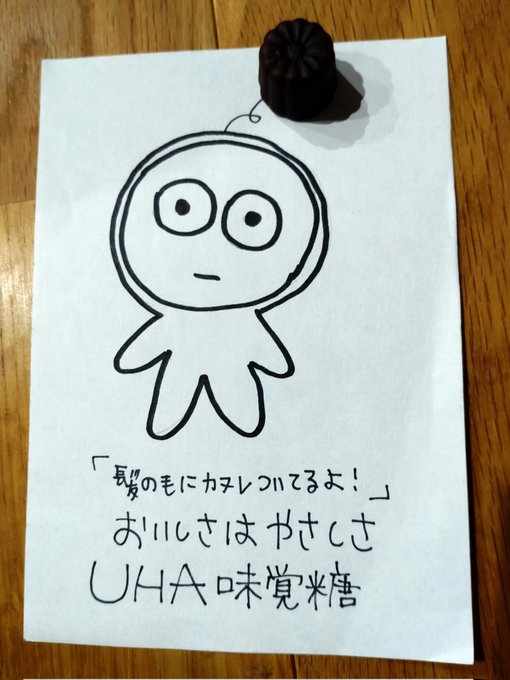 「髪の毛にカヌレついてるよ！」
おいしさはやさしさ
UHA味覚糖